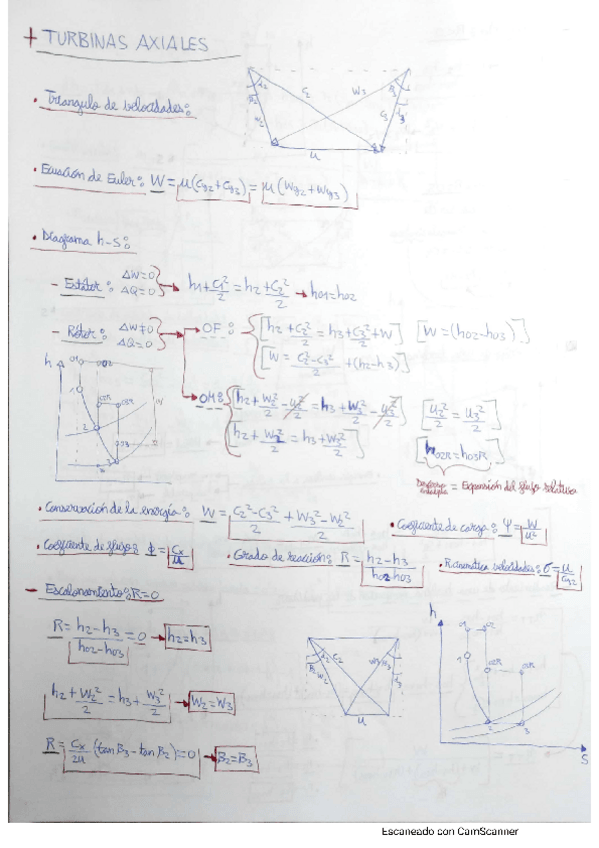 + TURBINAS AXIALES
• Triangulo de velocidades:
α2 C2 W3 β3
β2 W2 C3 α3
u
• Ecuación de Euler: W = u(Cy2+Cy3) = u(Wy2+Wy3)
• Diagrama h-s:
- Estátor: ΔW=0 ΔQ=0 → h1+C1²/2 = h2+C2²/2 → h01=h02
- Rótor: ΔW≠0 ΔQ=0 → OF: [h2+C2²/2 = h3+C3²/2+W] [W=(h02-h03)]
[W = C2²-C3²/2 + (h2-h3)]
h 01 02
1 02R 03R W
2 03
3
s
→ OM: [h2+W2²/2-u2²/2 = h3+W3²/2-u3²/2] [u2²/2 = u3²/2]
[h2+W2²/2 = h3+W3²/2] [h02R=h03R]
= Expansión del flujo relativo
• Conservación de la energía: W = C2²-C3²/2 + W3²-W2²/2 • Coeficiente de carga: Ψ = W/u²
• Coeficiente de flujo: ϕ = Cx/u • Grado de reacción: R = h2-h3/h02-h03 • R.cinemática velocidades: σ = u/Cy2
- Escalonamiento: R=0
R = h2-h3/h02-h03 = 0 → h2=h3
h2+W2²/2 = h3+W3²/2 → W2=W3
R = Cx/2u (tanβ3-tanβ2)=0 → β2=β3
β2 α2 C2 W2 W3 β3 α3
u
h
1 02R 03R
2 3
s
Escaneado con CamScanner